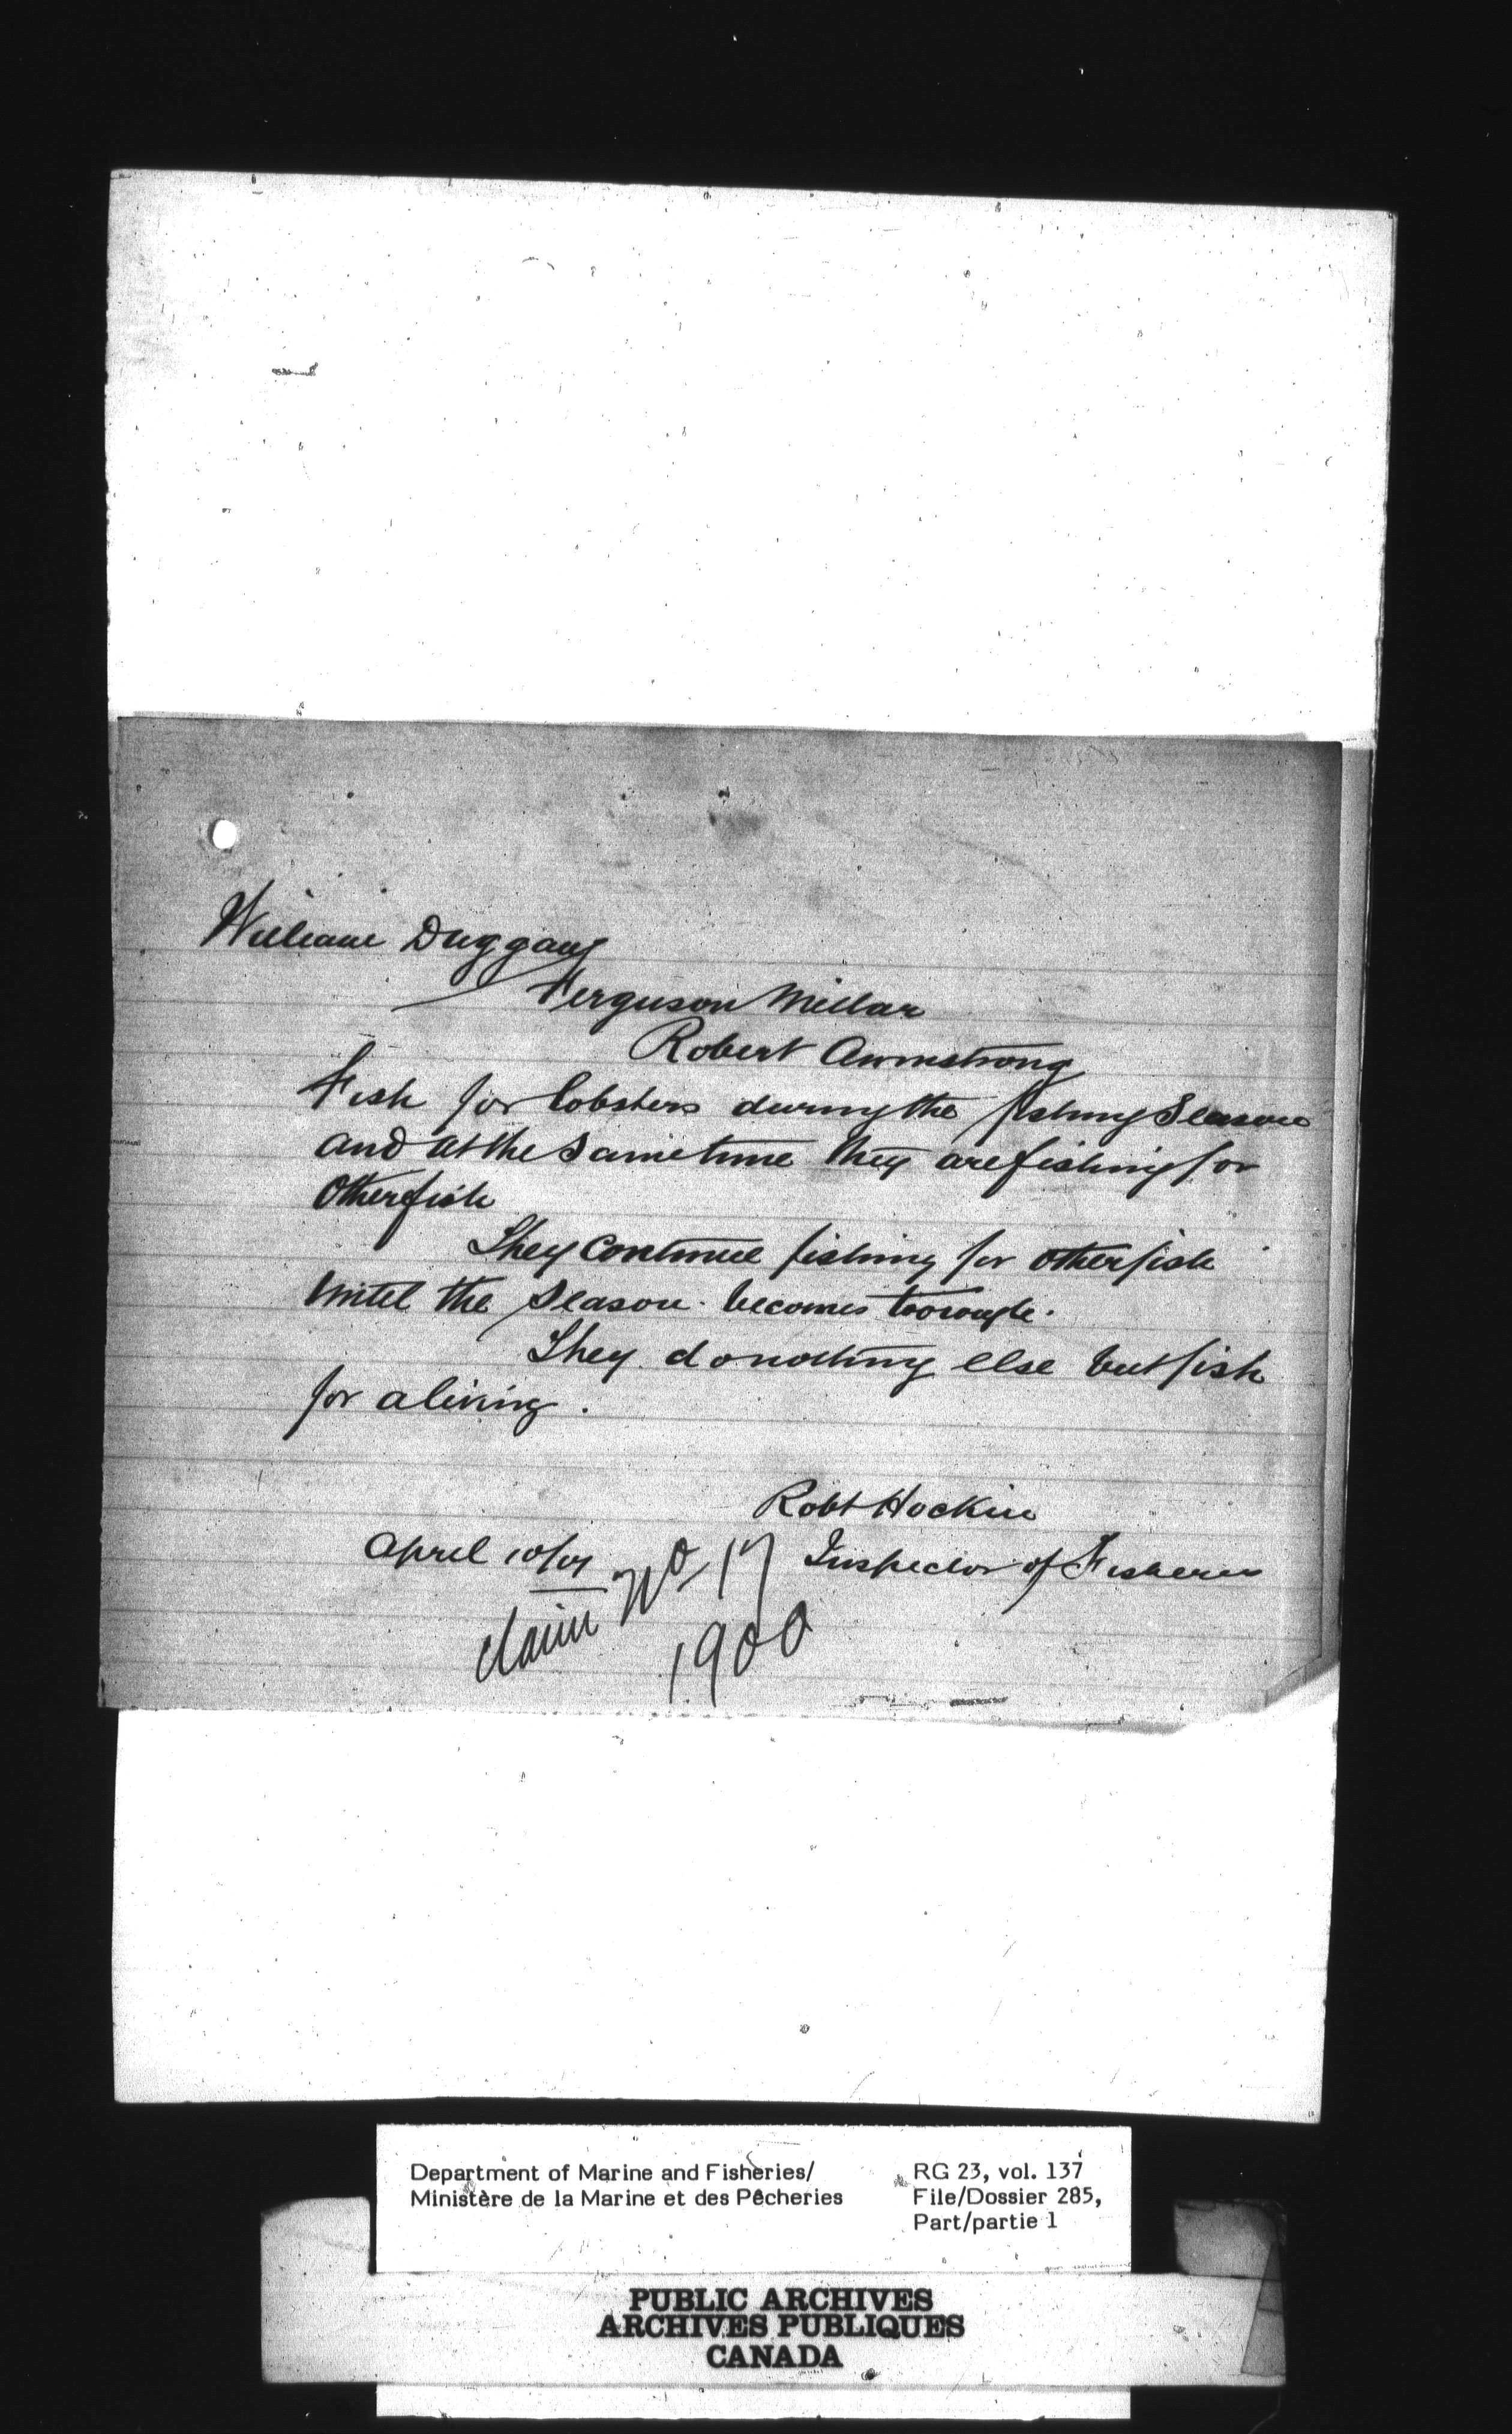 William Duggan
Ferguson Millar
Robert Armstrong
Fish for lobsters during the fishing Season
and at the same time they are fishing for
other fish
They continue fishing for other fish
until the season becomes too rough.
They do nothing else but fish
for a living.
Robt Hockin
April 10/01 Inspector of Fisheries
claim No 17
1900
Department of Marine and Fisheries/
Ministère de la Marine et des Pêcheries
RG 23, vol. 137
File/Dossier 285,
Part/partie 1
PUBLIC ARCHIVES
ARCHIVES PUBLIQUES
CANADA